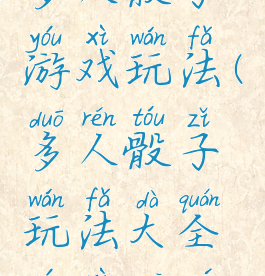 多人骰子
yóu xì wán fǎ
游戏玩法(
duō rén tóu zǐ
多人骰子
wán fǎ dà quán
玩法大全